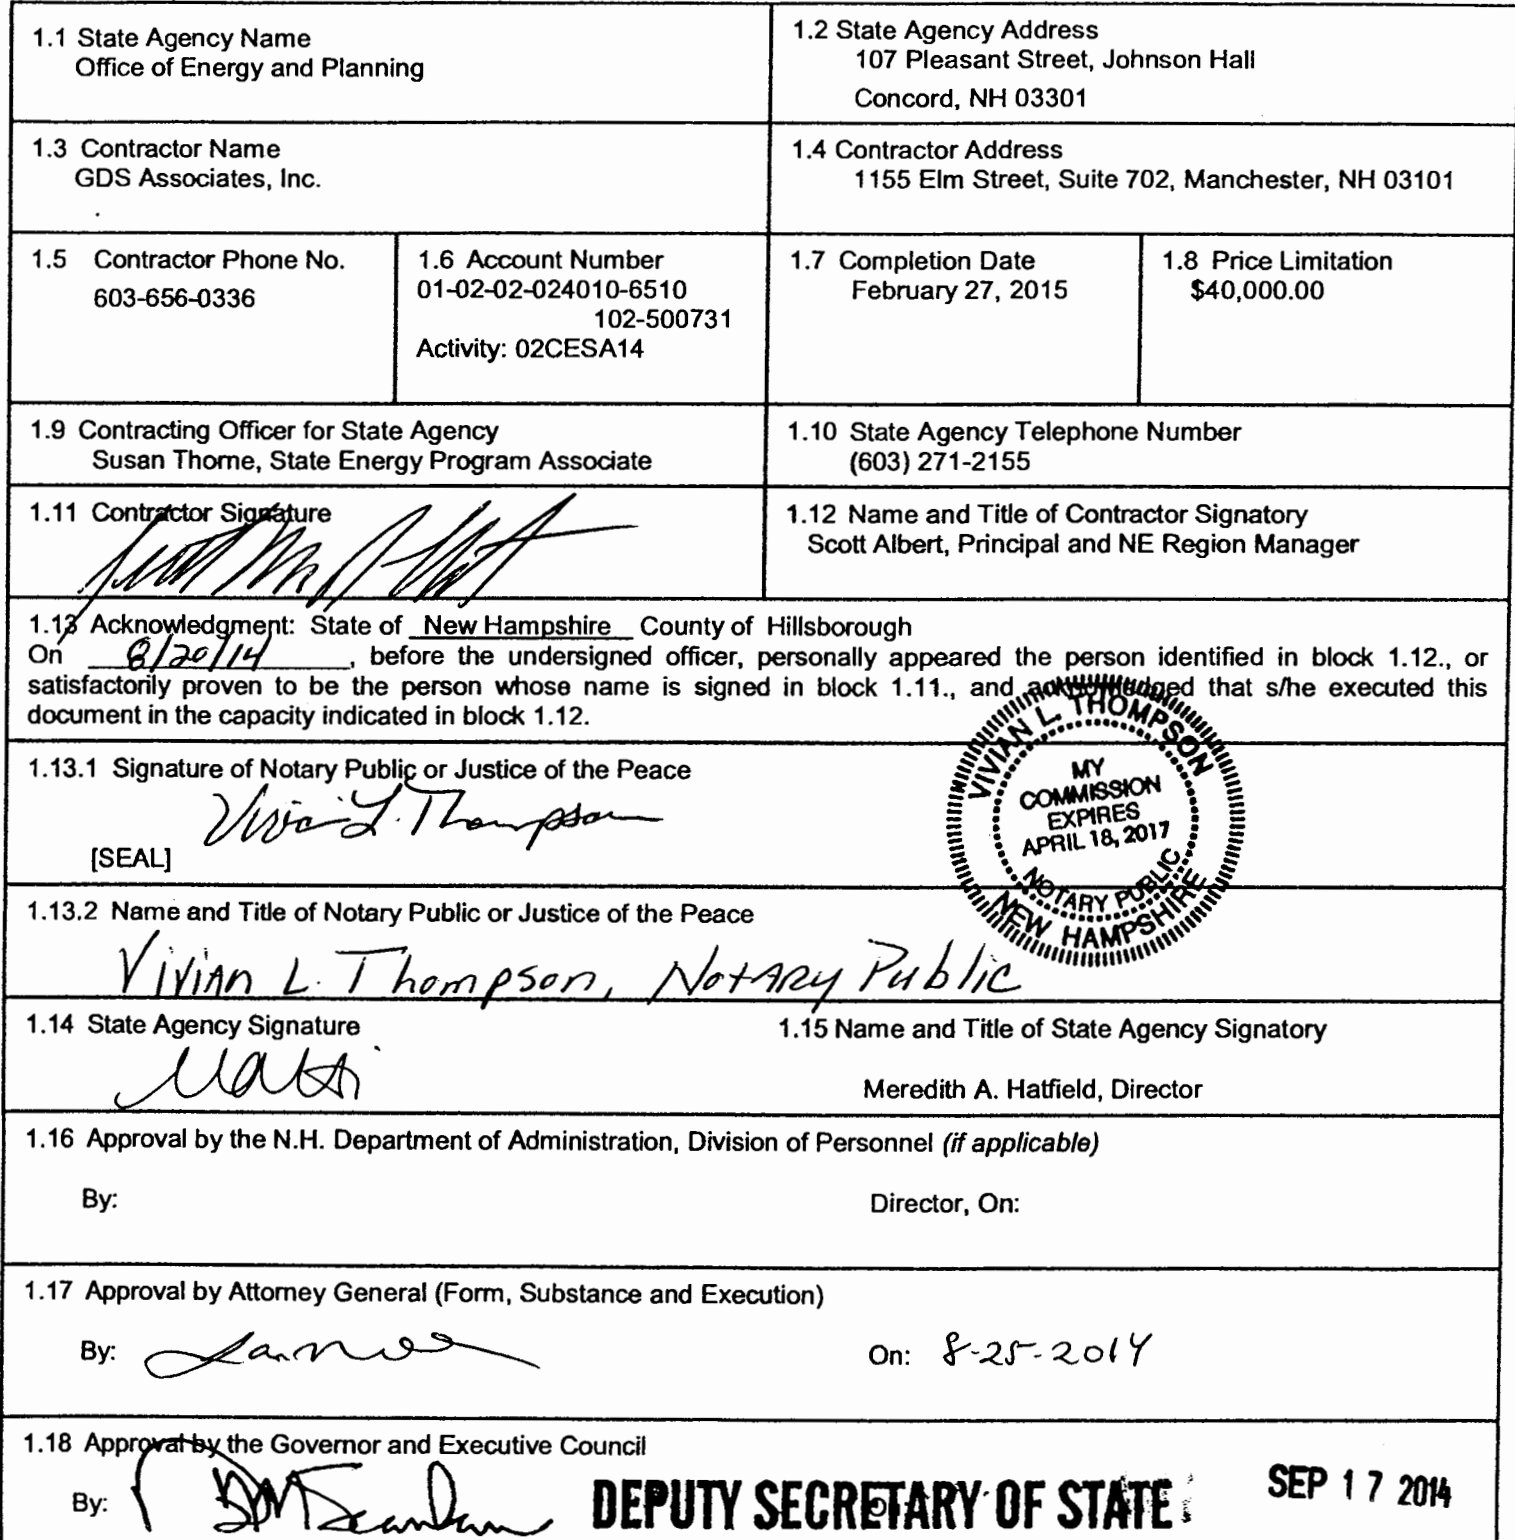 1.1 State Agency Name
Office of Energy and Planning
1.2 State Agency Address
107 Pleasant Street, Johnson Hall
Concord, NH 03301
1.3 Contractor Name
GDS Associates, Inc.
1.4 Contractor Address
1155 Elm Street, Suite 702, Manchester, NH 03101
1.5 Contractor Phone No.
603-656-0336
1.6 Account Number
01-02-02-024010-6510
102-500731
Activity: 02CESA14
1.7 Completion Date
February 27, 2015
1.8 Price Limitation
$40,000.00
1.9 Contracting Officer for State Agency
Susan Thorne, State Energy Program Associate
1.10 State Agency Telephone Number
(603) 271-2155
1.11 Contractor Signature
1.12 Name and Title of Contractor Signatory
Scott Albert, Principal and NE Region Manager
1.13 Acknowledgment: State of New Hampshire County of Hillsborough
On 8/20/14, before the undersigned officer, personally appeared the person identified in block 1.12., or
satisfactorily proven to be the person whose name is signed in block 1.11., and acknowledged that s/he executed this
document in the capacity indicated in block 1.12.
1.13.1 Signature of Notary Public or Justice of the Peace
Vivian L. Thompson
[SEAL]
VIVIAN L. THOMPSON
MY
COMMISSION
EXPIRES
APRIL 18, 2017
NOTARY PUBLIC
NEW HAMPSHIRE
1.13.2 Name and Title of Notary Public or Justice of the Peace
Vivian L. Thompson, Notary Public
1.14 State Agency Signature
1.15 Name and Title of State Agency Signatory
Meredith A. Hatfield, Director
1.16 Approval by the N.H. Department of Administration, Division of Personnel (if applicable)
By:
Director, On:
1.17 Approval by Attorney General (Form, Substance and Execution)
By:
On: 8-25-2014
1.18 Approval by the Governor and Executive Council
By:
DEPUTY SECRETARY OF STATE
SEP 17 2014